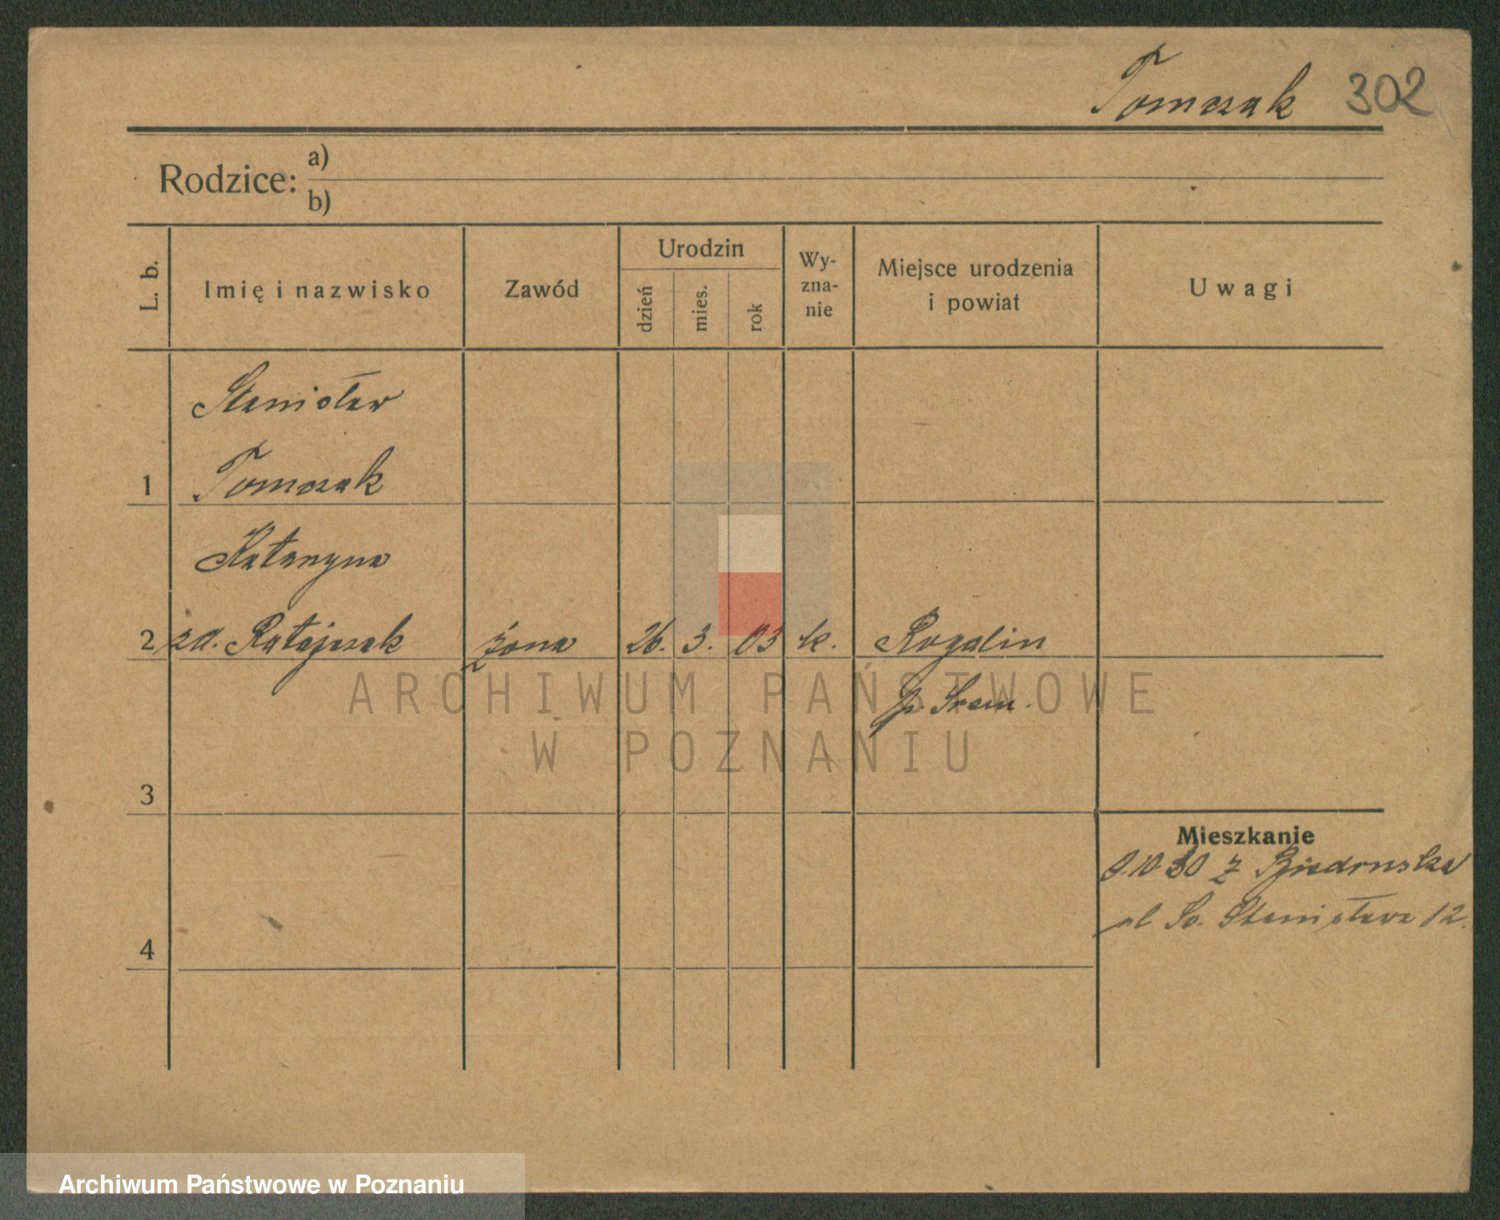 Tomczak 302
Rodzice: a)
b)
L. b.
Imię i nazwisko
Zawód
Urodzin
dzień
mies.
rok
Wy-
zna-
nie
Miejsce urodzenia
i powiat
Uwagi
Stanisław
1 Tomczak
Katarzyna
2 zd. Ratajczak żona 26. 3. 03 k. Rogalin
p. Śrem.
ARCHIWUM PAŃSTWOWE
W POZNANIU
3
Mieszkanie
10 30 z
ul Św. Stanisława 12.
4
Archiwum Państwowe w Poznaniu